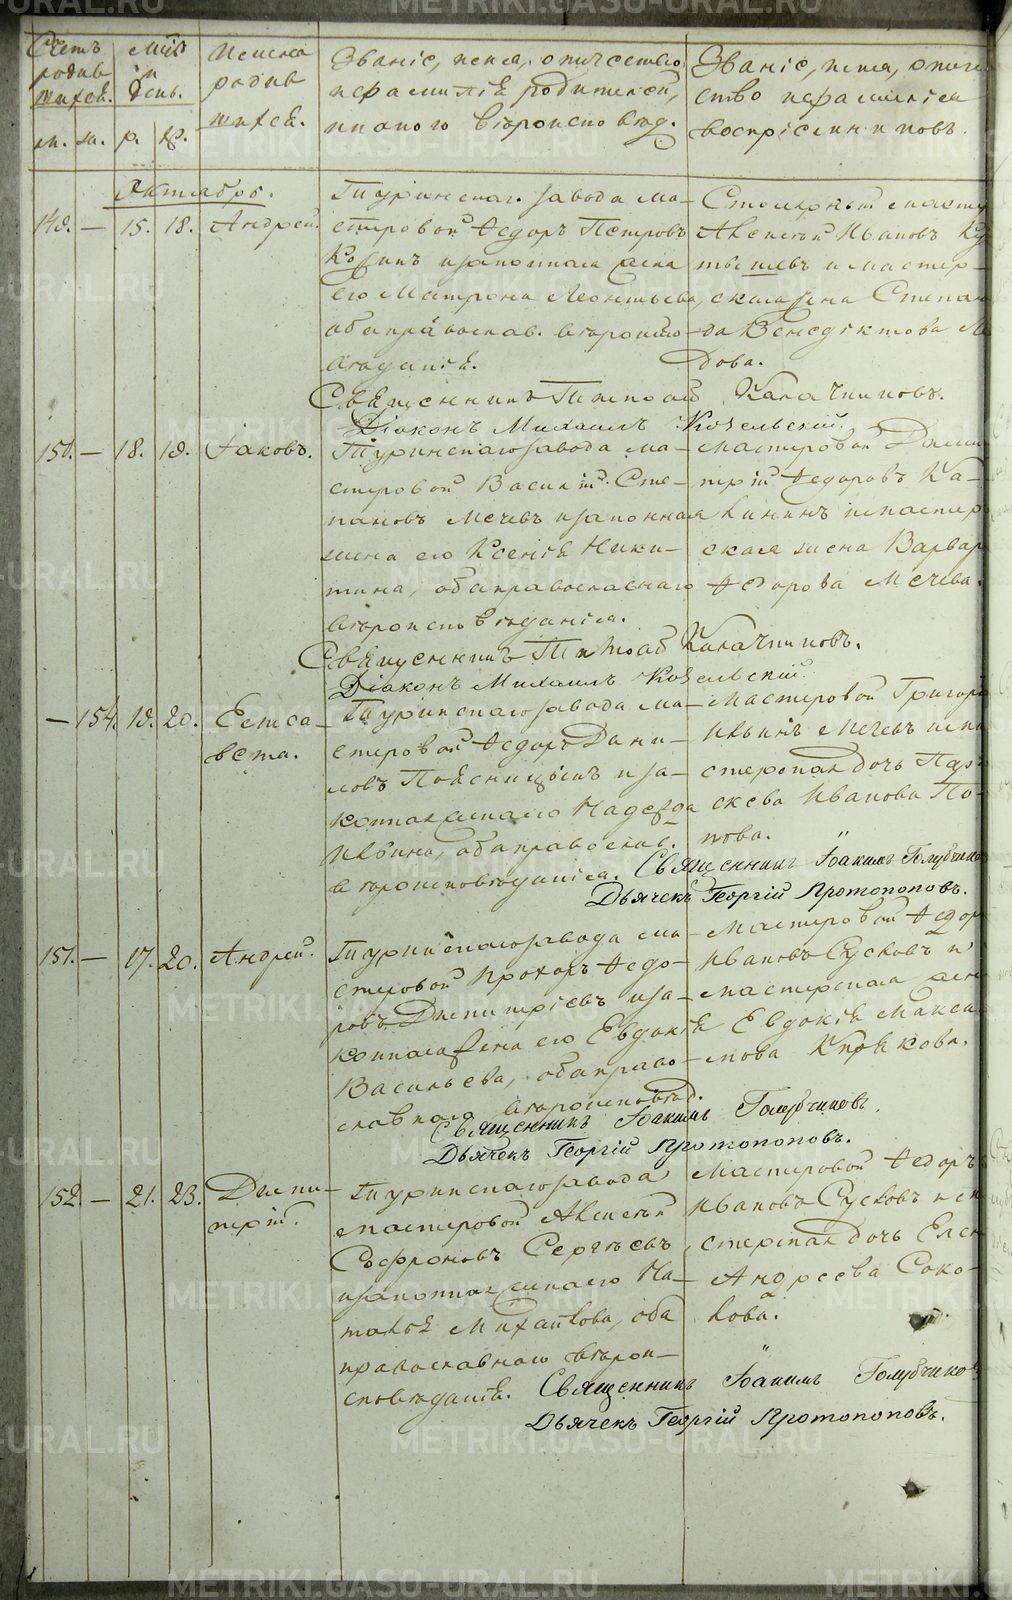 Счетъ
родив
шихся.
м. ж.
Мѣс
и
день.
р. кр.
Имена
родив
шихся.
Званіе, имя, отчество
и фамилія родителей,
и какого вѣроисповѣд.
Званіе, имя, отче
ство и фамилія
воспріемниковъ.
Октябрь.
149. — 15. 18. Андрей.
Туринскаг. завода ма-
стеровой Ѳедоръ Петровъ
и законная жена
его Матрона Леонтьева,
оба православ. вѣроиспо-
вѣданія.
Столярный масте
Алексѣй Ивановъ
и мастер-
ская жена Степани
да Венедіктова
дова.
Священникъ Тимоѳей Калачниковъ.
Діаконъ Михаилъ Козельскій.
150. — 18. 19. Іаковъ.
Туринскаго завода ма-
стеровой Василій Сте-
пановъ Мечевъ и законная
жена его Ксенія Ники-
тина, оба православнаго
вѣроисповѣданія.
мастеровой Дими
трій Ѳедоровъ Ка-
лининъ и мастер
ская жена Варвар
Ѳедорова Мечева.
Священникъ Тимоѳей Калачниковъ.
Діаконъ Михаилъ Козельскій.
— 154. 19. 20. Елиса-
вета.
Туринскаго завода ма-
стеровой Ѳедоръ Дани-
ловъ Поясницынъ и за-
конная жена его Надежда
Ильина, оба православ.
вѣроисповѣданія.
мастеровой Григорі
Ильинъ Мечевъ и ма
стерская дочь Пар
скева Иванова По-
пова.
Священникъ Іоакимъ Голубчиков
Дьячекъ Георгій Протопоповъ.
151. — 17. 20. Андрей.
Туринскаго завода ма-
стеровой Прохоръ Ѳедо-
ровъ Димитріевъ и за-
конная жена его Евдокія
Васильева, оба право-
славнаго вѣроисповѣд.
мастеровой Ѳедор
Ивановъ Сусловъ и
мастерская жен
Евдокія Макси
мова Крюкова.
Священникъ Іоакимъ Голубчиковъ.
Дьячекъ Георгій Протопоповъ.
152. — 21. 23. Дими-
трій.
Туринскаго завода
мастеровой Алексѣй
Софроновъ Сергѣевъ
и законная жена его На-
талья Михайлова, оба
православнаго вѣрои-
сповѣданія.
мастеровой Ѳедоръ
Ивановъ Сусловъ и ма
стерская дочь Елен
Андреева Соко-
лова.
Священникъ Іоакимъ Голубчико
Дьячекъ Георгій Протопоповъ.